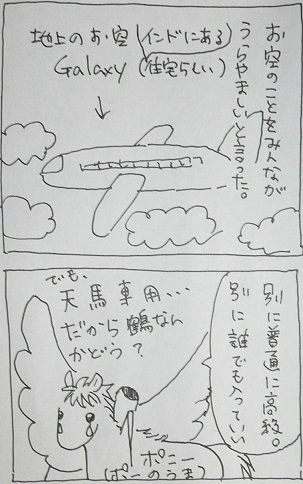 お空のことをみんなが
うらやましいと言った。
地上のお空(インドにある
Galaxy(住宅らしい)
別に普通に高級。
別に誰でも入っていい
でも、
天馬専用・・・
だから鶴なん
かどう?
ポニー
(ポニーのうま)